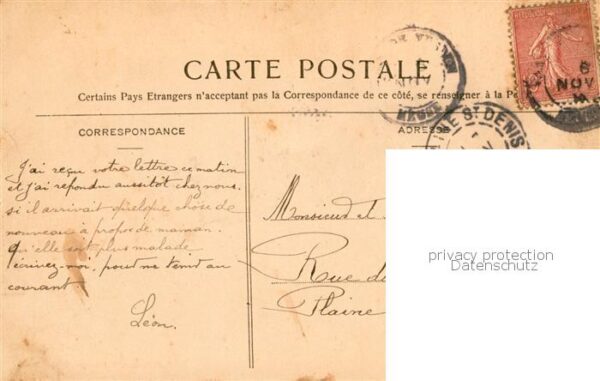 CARTE POSTALE
Certains Pays Etrangers n'acceptent pas la Correspondance de ce côté, se renseigner à la
CORRESPONDANCE
J'ai reçu votre lettre ce matin
et j'ai répondu aussitôt chez nous.
si il arrivait quelque chose de
nouveau à propos de maman.
qu'elle soit plus malade
écrivez-moi, pour me tenir au
courant
Léon.
ADRESSE
Monsieur et
Rue du
Plaine
ST DENIS
6
NOV
privacy protection
Datenschutz